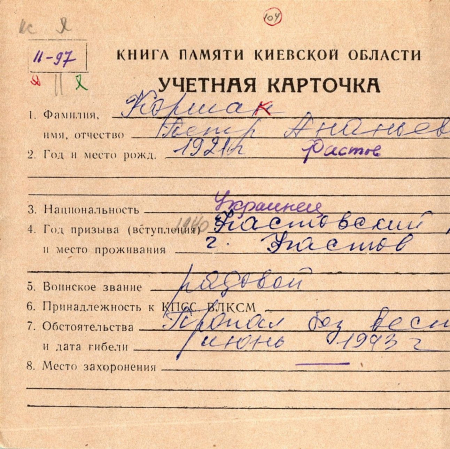 104
II-97
КНИГА ПАМЯТИ КИЕВСКОЙ ОБЛАСТИ
УЧЕТНАЯ КАРТОЧКА
1. Фамилия, Коршак
имя, отчество Петр Ананьев
2. Год и место рожд. 1921г Фастов
3. Национальность Украинец
4. Год призыва (вступления) 1940 Фастовский
и место проживания г. Фастов
5. Воинское звание рядовой
6. Принадлежность к КПСС ВЛКСМ
7. Обстоятельства Пропал без вест
и дата гибели июнь 1943 г
8. Место захоронения —